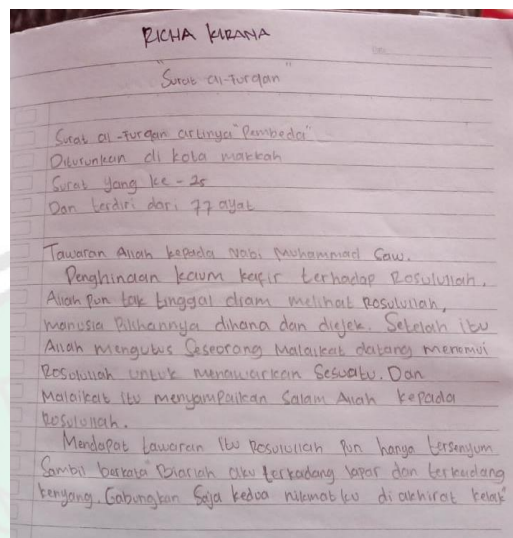 RICHA KIRANA
"Surat al-furqan"
Surat al-furqan artinya "Pembeda"
Diturunkan di kota makkah
Surat yang ke-25
Dan terdiri dari 77 ayat
Tawaran Allah kepada Nabi Muhammad Saw.
Penghinaan kaum kafir terhadap Rosulullah.
Allah pun tak tinggal diam melihat Rosulullah,
manusia Pilihannya dihana dan diejek. Setelah itu
Allah mengutus Seseorang Malaikat datang menemui
Rosulullah untuk menawarkan Sesuatu. Dan
Malaikat itu menyampaikan Salam Allah kepada
Rosulullah.
Mendapat tawaran itu Rosulullah Pun hanya tersenyum
Sambil barkata "Biarlah aku terkadang lapar dan terkadang
kenyang. Gabungkan Saja kedua nikmat ku di akhirat kelak"